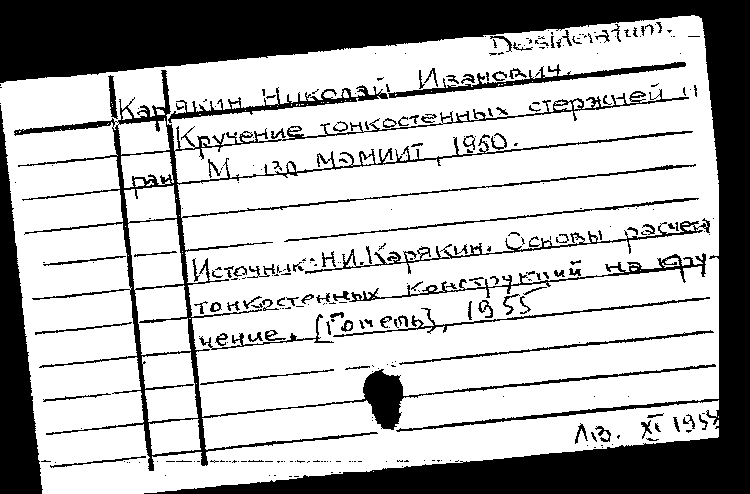 Desideratum.
Карякин, Николай Иванович.
Кручение тонкостенных стержней и
рам М, изд. МЭМИИТ, 1950.
Источник: Н.И. Карякин. Основы расчета
тонкостенных конструкций на кру-
чение. [Гомель], 1955
XI 195